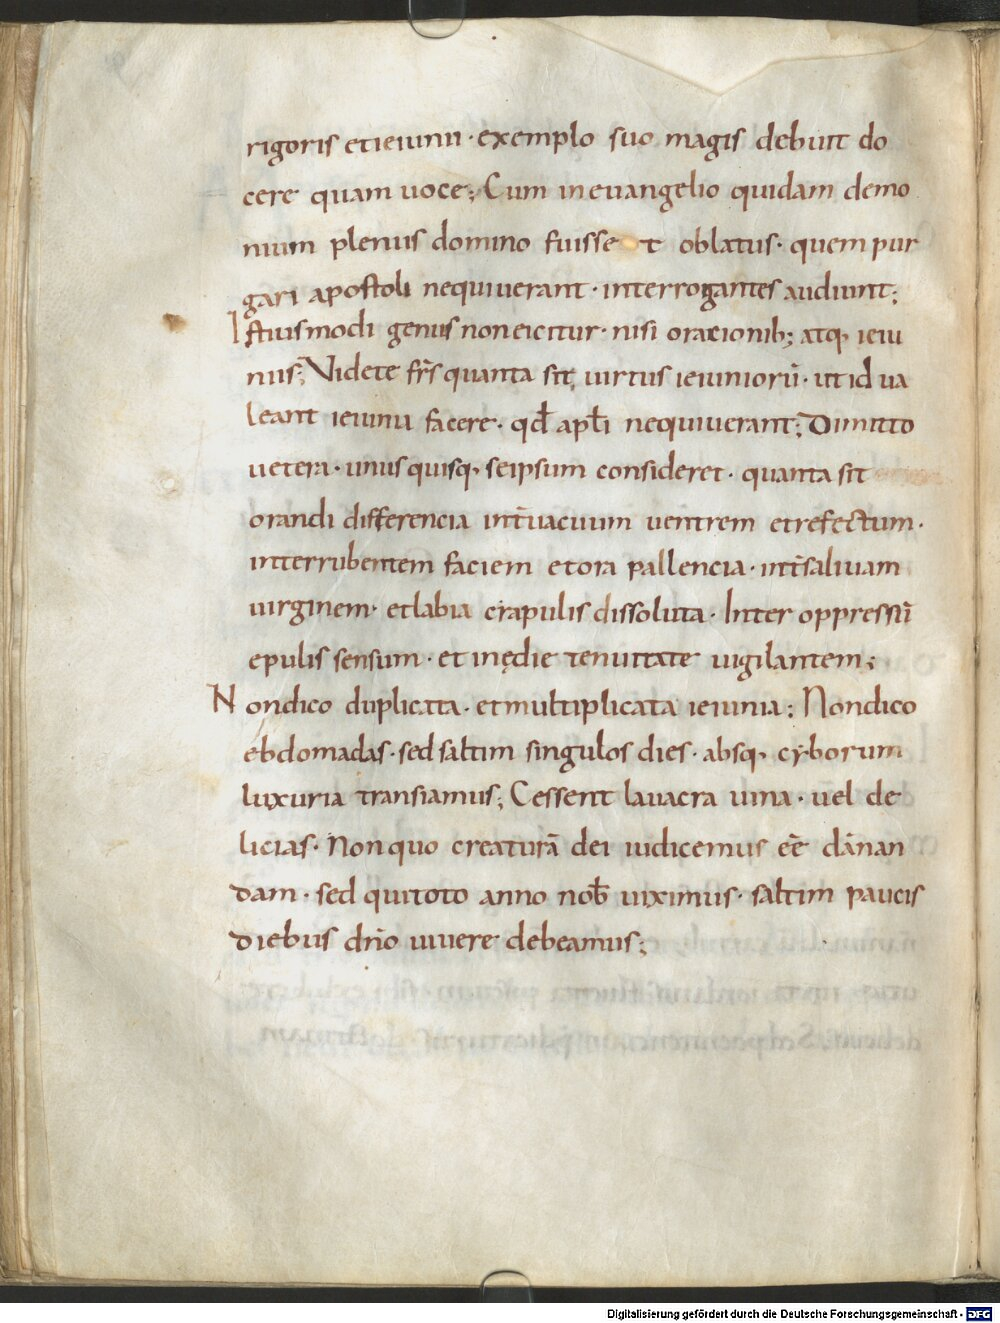 rigoris et ieiunii · exemplo suo magis debunt do
cere quam uoce; Cum in euangelio quidam demo
nium plenus domino fuisse t oblatus · quem pur
gari apostoli nequiuerant · interrogantes audiunt;
Istiusmodi genus non eicitur · nisi orationib; atq; ieiu
niis; Videte fr̄s quanta sit uirtus ieiuniorū · ut id ua
leant ieiunii facere · qđ apłi nequiuerant; Dimitto
uetera · unusquisq; seipsum consideret · quanta sit
orandi differencia int̄ uacuum uentrem et refectum ·
inter rubentem faciem et ora pallencia · int̄ saliuam
uirginem · et labia crapulis dissoluta · Inter oppressū
epulis sensum · et inędie tenuitate uigilantem;
Non dico duplicata · et multiplicata ieiunia; Non dico
ebdomadas · sed saltim singulos dies · absq; cyborum
luxuria transiamus; Cessent lauacra uina · uel de
licias · Non quo creaturā dei iudicemus eē dānan
dam · sed qui toto anno nob̄ uiximus · saltim paucis
diebus dn̄o uiuere debeamus;
Digitalisierung gefördert durch die Deutsche Forschungsgemeinschaft - DFG